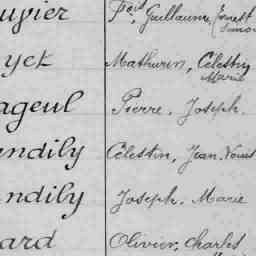 upier Fois, Guillaume, Ernest
Simon
yet Mathurin, Célestin
Marie
ageul Pierre, Joseph.
endily Célestin, Jean Louis
ndily Joseph, Marie
ard Olivier, Charles